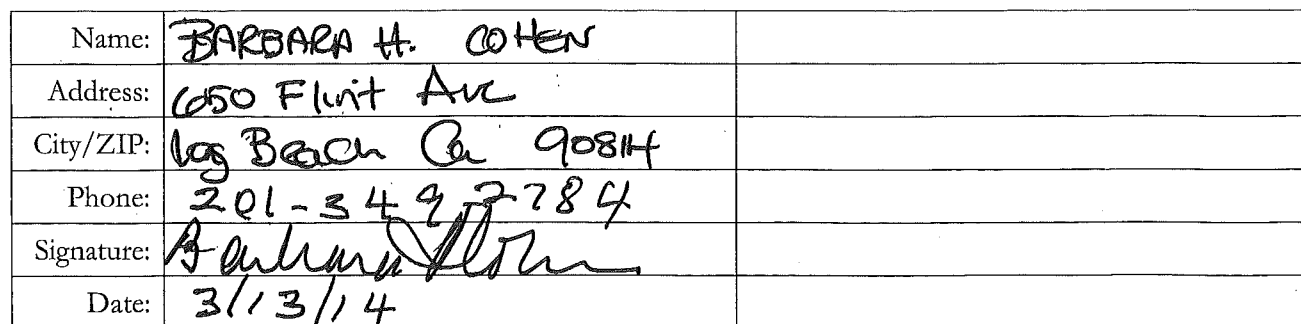 Name: BARBARA H. COHEN
Address: 650 Flint Ave
City/ZIP: Log Beach Ca 90814
Phone: 201-349-2784
Signature: Barbara H Cohen
Date: 3/13/14